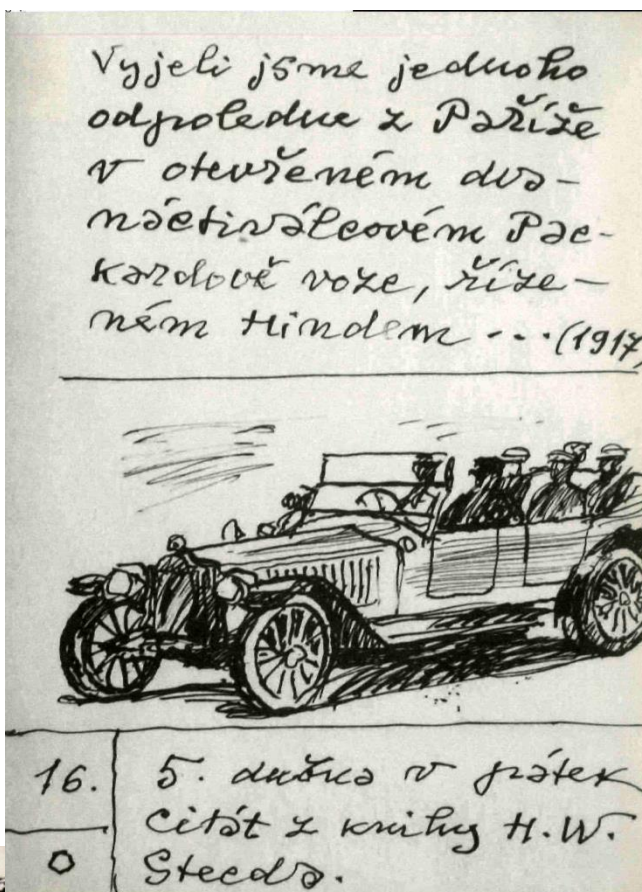 Vyjeli jsme jednoho
odpoledne z Paříže
v otevřeném dva-
náctiválcovém Pac-
kardově voze, říze-
ném Hindem ...(1917)
16.
5. dubna v pátek
citát z knihy H.W.
Steeda.